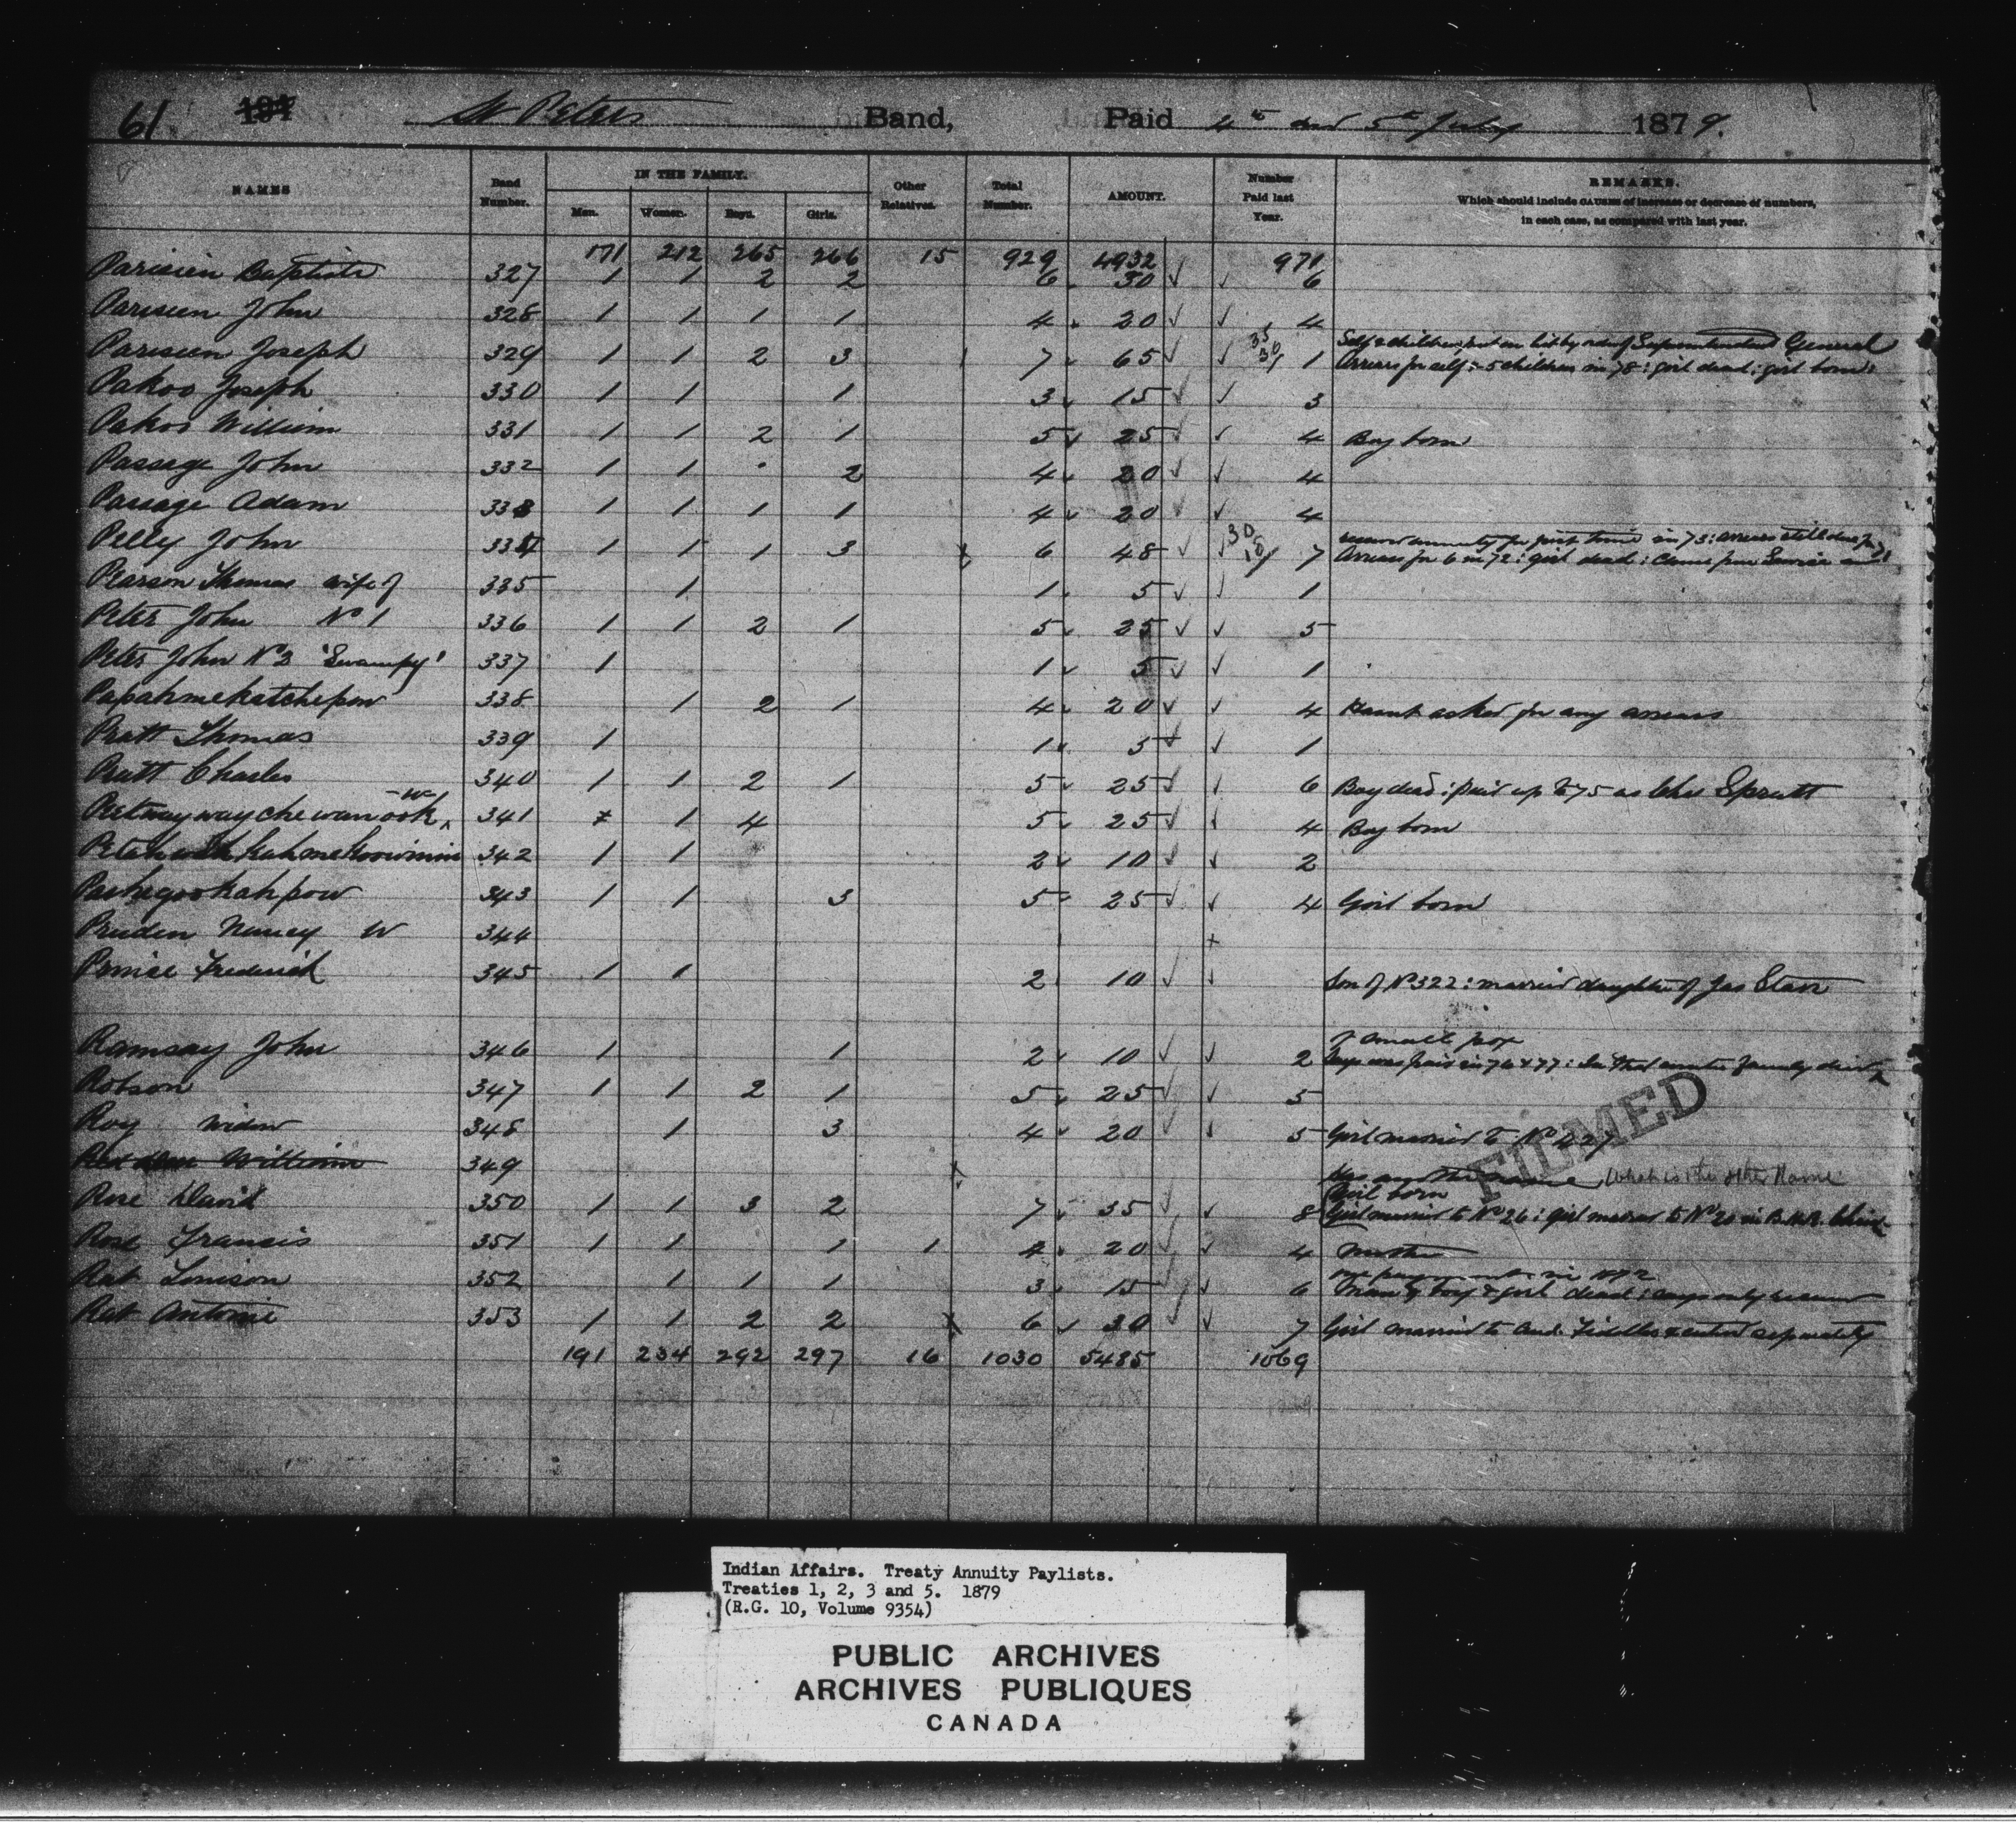 61 St Peters Band, Paid 4th and 5th July 1879.
NAMES Band Number. IN THE FAMILY. Men. Women. Boys. Girls. Other Relatives. Total Number. AMOUNT. Number Paid last Year. REMARKS.
Which should include CAUSES of increase or decrease of numbers,
in each case, as compared with last year.
171 212 265 266 15 929 4932 971
Parisien Baptiste 327 1 1 2 2 6 30 ✓ ✓ 6
Parisien John 328 1 1 1 1 4 20 ✓ ✓ 4
Self & children put on list by order of Superintendent General
Parisien Joseph 329 1 1 2 3 7 65 ✓ ✓ 35 30/ 1 Arrears for self & 5 children in 78: girl dead: girl born:
Pakoo Joseph 330 1 1 1 3 15 ✓ ✓ 3
Pakoo William 331 1 1 2 1 5 25 ✓ ✓ 4 Boy born
Passage John 332 1 1 2 4 20 ✓ ✓ 4
Passage Adam 333 1 1 1 1 4 20 ✓ ✓ 4
annuity for first time in 73: arrears still due for 71
Pelly John 334 1 1 1 3 6 48 ✓ ✓ 30 18/ 7 Arrears for 6 in 72: girl dead:
Pearson Thomas wife of 335 1 1 5 ✓ ✓ 1
Peter John No 1 336 1 1 2 1 5 25 ✓ ✓ 5
Peter John No 2 'Swampy' 337 1 1 5 ✓ ✓ 1
Papahmekatchepow 338 1 2 1 4 20 ✓ ✓ 4 Hasnt asked for any arrears
Pratt Thomas 339 1 1 5 ✓ ✓ 1
Pratt Charles 340 1 1 2 1 5 25 ✓ ✓ 6 Boy dead: paid up to 75 as Chs Spratt
Peetwaywaychewanook W 341 1 4 5 25 ✓ ✓ 4 Boy born
342 1 1 2 10 ✓ ✓ 2
Pashegookahpow 343 1 1 3 5 25 ✓ ✓ 4 Girl born
Pruden Nancy W 344 x
Prince Frederick 345 1 1 2 10 ✓ ✓ Son of No 322: married daughter of Jas Starr
of small pox
Ramsay John 346 1 1 2 10 ✓ ✓ 2 Says was paid in 76 & 77: family died
Robson 347 1 1 2 1 5 25 ✓ ✓ 5
Roy widow 348 1 3 4 20 ✓ ✓ 5 Girl married to No
William 349 Has another name What is the other Name
Girl born
Rose David 350 1 1 3 2 7 35 ✓ ✓ 8 Girl married to No 26: girl married to No 20 in B.H.R.
Rose Francis 351 1 1 1 1 4 20 ✓ ✓ 4 Mother
one payment in 1872
Rat Louison 352 1 1 1 3 15 ✓ 6 Man, boy & girl dead: says only
Rat Antoine 353 1 1 2 2 6 30 ✓ ✓ 7 Girl married to And. Fiddler & entered separately
191 234 292 297 16 1030 5485 1069
FILMED
Indian Affairs. Treaty Annuity Paylists.
Treaties 1, 2, 3 and 5. 1879
(R.G. 10, Volume 9354)
PUBLIC ARCHIVES
ARCHIVES PUBLIQUES
CANADA